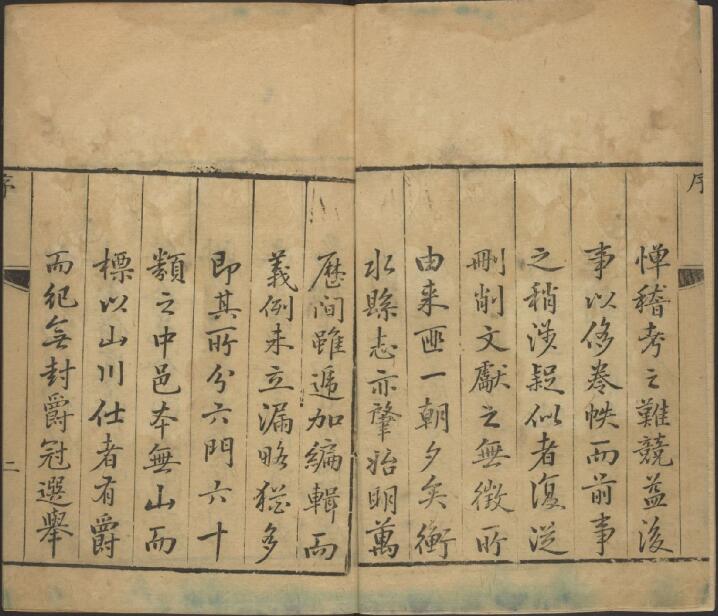 序
憚稽考之難競益後
事以侈卷帙而前事
之稍涉疑似者復從
刪削文獻之無徵所
由来匪一朝夕矣衡
水縣志亦肇始明萬
歷间雖遞加編輯而
義例未立漏略猶多
即其所分六門六十
類之中邑本無山而
標以山川仕者有爵
而紀無封爵冠選舉
序
二